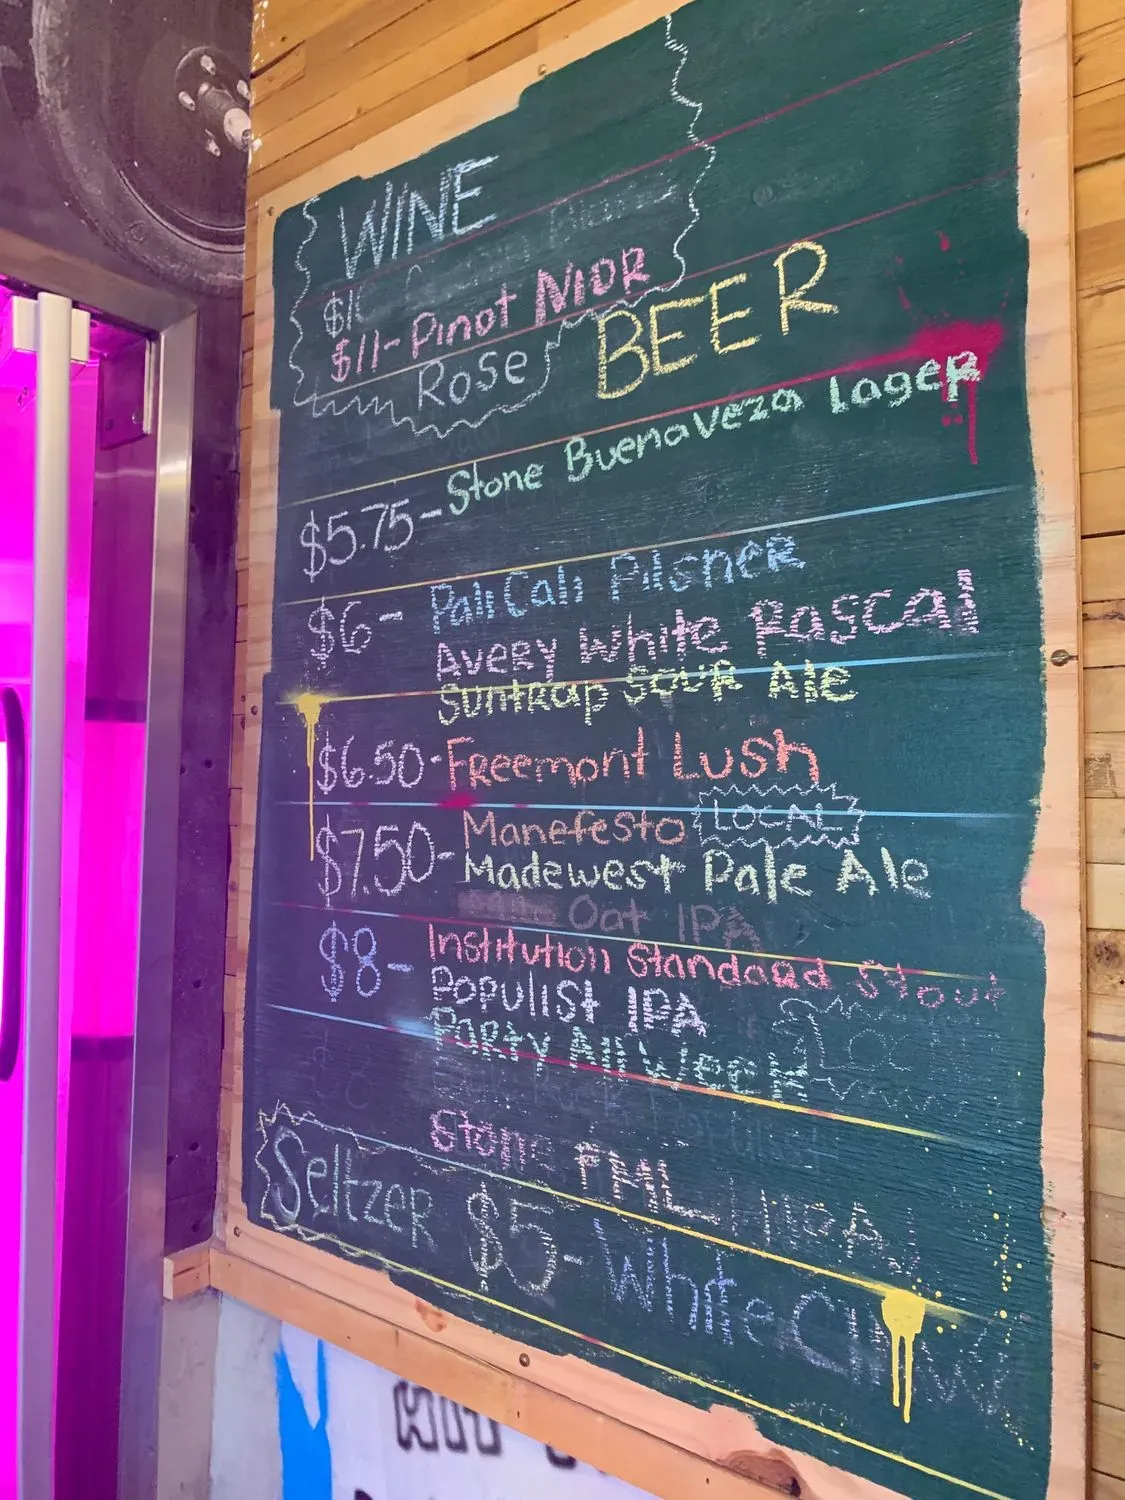 WINE
$1
$11-Pinot NIOR
Rose
BEER
Stone Buenaveza Lager
$5.75-
$6- Pali Cali Pilsner
Avery White Rascal
Suntrap Sour Ale
$6.50-Freemont Lush
$7.50- Manefesto LOCAL
Madewest Pale Ale
Oat IPA
$8- Institution Standard Stout
Populist IPA
Party All Week
Stone FML IPA
Seltzer $5- White Claw